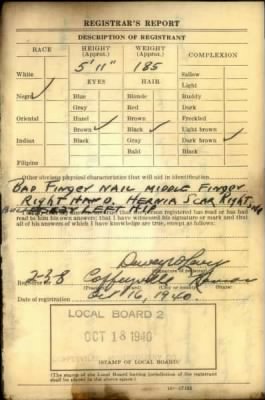 REGISTRAR'S REPORT
DESCRIPTION OF REGISTRANT
RACE HEIGHT (Approx.) WEIGHT (Approx.) COMPLEXION
5' 11" 185
White Sallow
EYES HAIR Light
Negro ✓ Blue Blonde Ruddy
Gray Red Dark
Oriental Hazel Brown Freckled
Brown ✓ Black ✓ Light brown ✓
Indian Black Gray Dark brown
Bald Black
Filipino
Other obvious physical characteristics that will aid in identification
BAD FINGER NAIL MIDDLE FINGER
RIGHT HAND, HERNIA SCAR RIGHT SIDE
person registered has read or has had
read to him his own answers; that I have witnessed his signature or mark and that
all of his answers of which I have knowledge are true, except as follows:
Registrar for 2-38 Coffeyville Kansas
(City or County) (State)
Date of registration Oct 16, 1940
LOCAL BOARD 2
OCT 18 1940
(STAMP OF LOCAL BOARD)
(The stamp of the Local Board having jurisdiction of the registrant
shall be placed in the above space.)